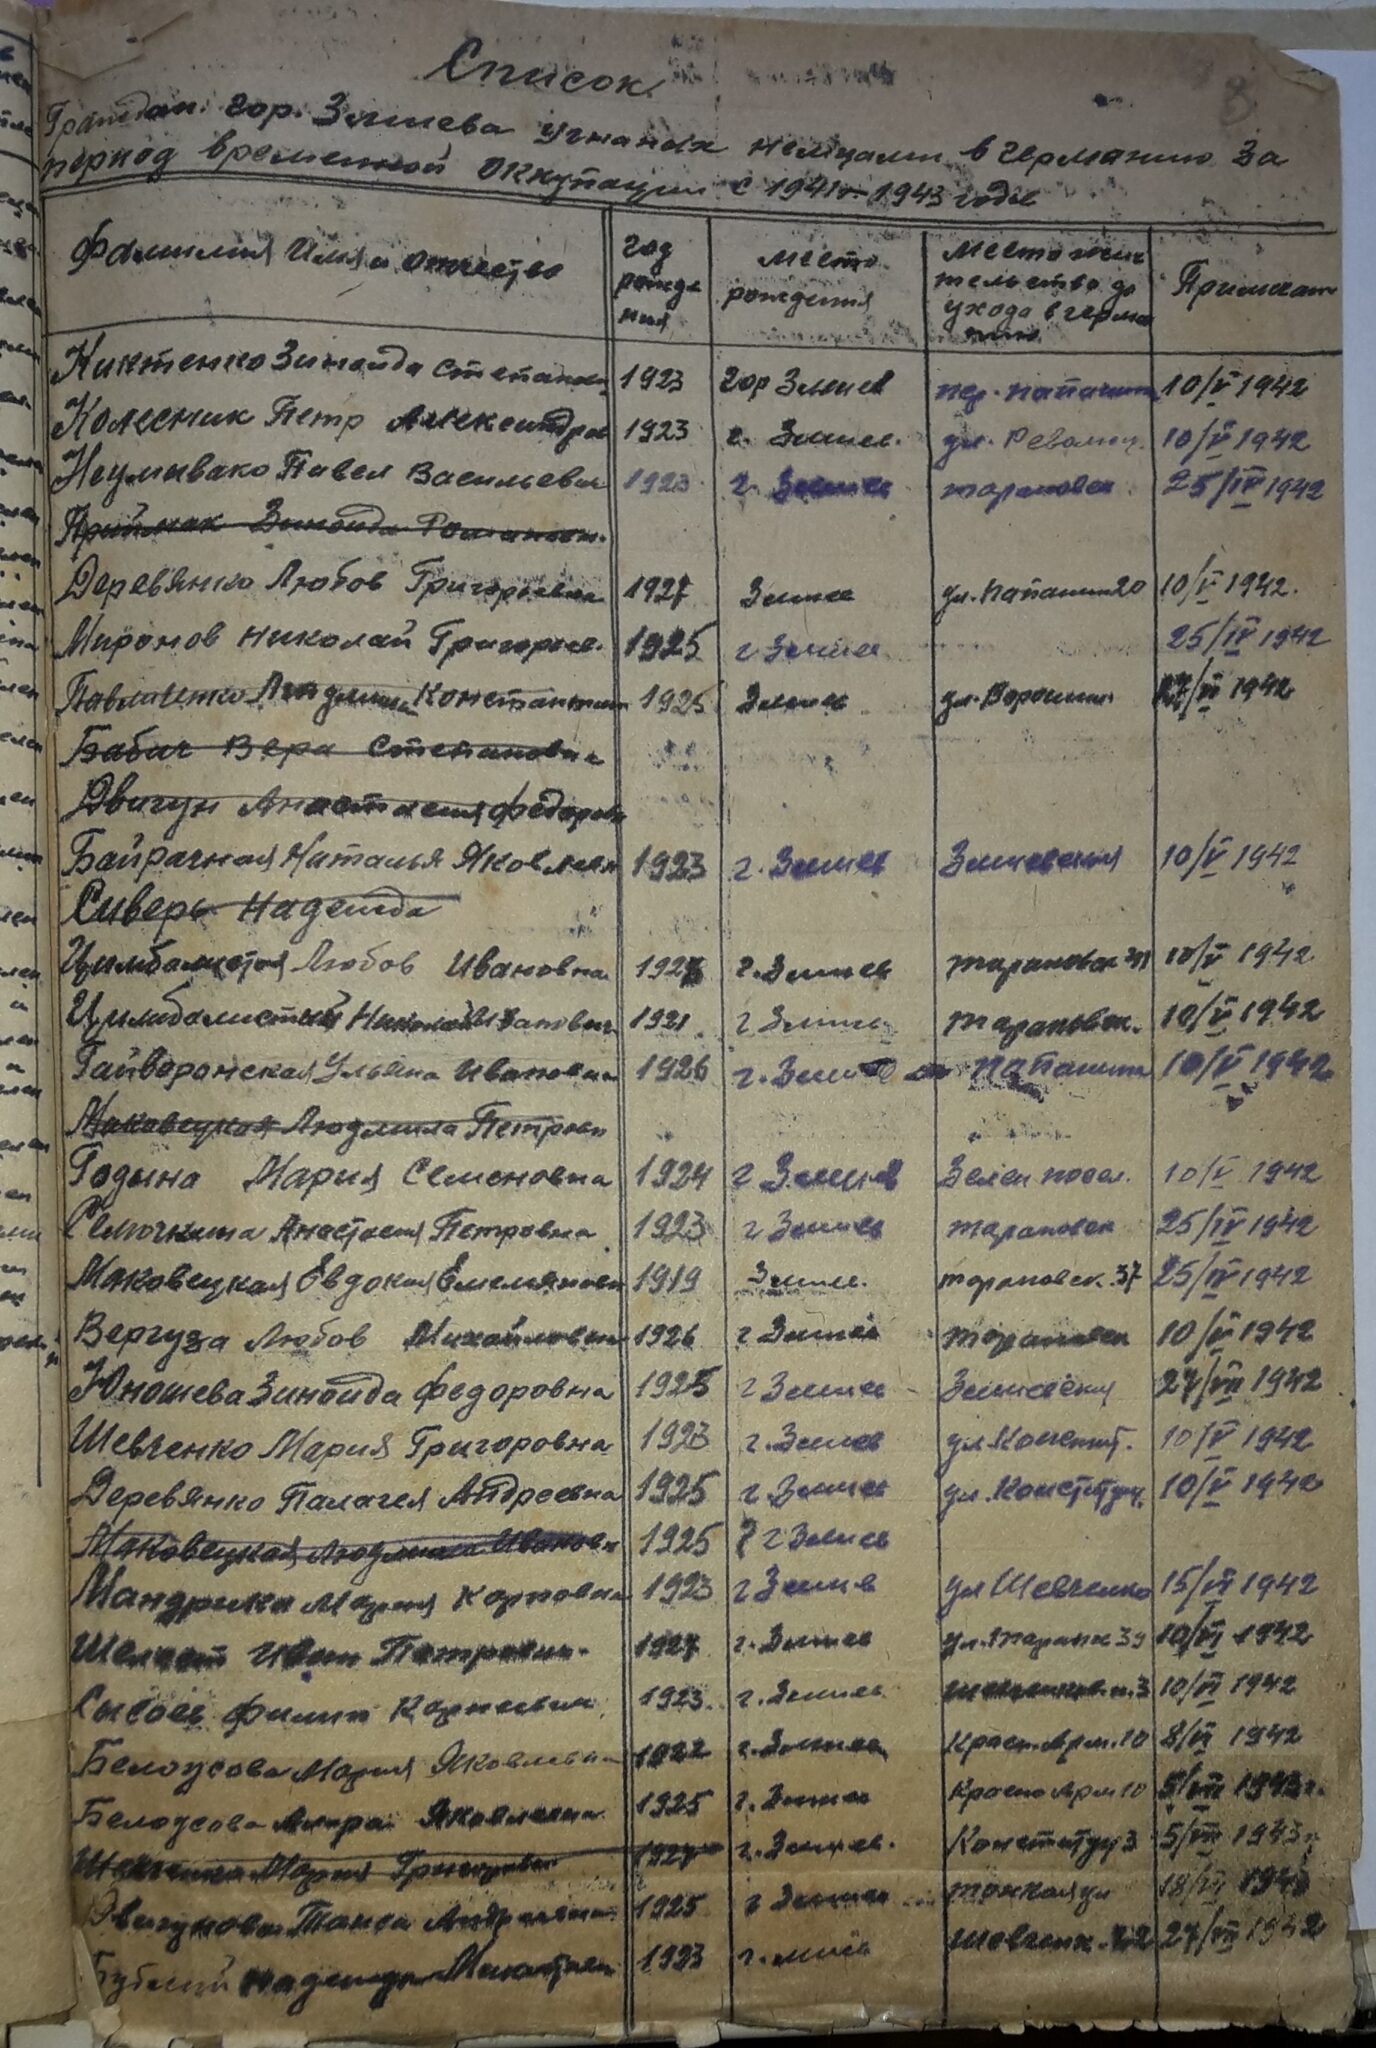 Список
Граждан гор. Змиева угнаных немцами в германию за
период временной оккупации с 1941 - 1943 годы
Фамилия Имя и отчество год рожде ния место рождения место жит тельства до ухода в герма нию Примечан
Никтенко Зинаида Степанов 1923 гор Змиев пер. Папанина 10/V 1942
Колесник Петр Александров 1923 г. Змиев. ул. Революц. 10/V 1942
Неумывако Павел Васильевич 1923 г. Змиев тарановск 25/IV 1942
Приймак Зинаида Романовн.
Деревянко Любов Григорьевна 1927 Змиев ул. Папанин 20 10/V 1942.
Миронов Николай Григорьев. 1925 г Змиев 25/IV 1942
Людмила Константин 1925 Змиев ул. Ворошил 1942
Бабич Вера Степановна
Двигун Анастасия федоров
Байрачная Наталья Яковлевн 1923 г. Змиев Змиевская 10/V 1942
Сиверь Надежда
Цымбалистая Любов Ивановна г. Змиев тарановск 10/V 1942
Цымбалистый Николай Иванович 1921 г Змиев тарановск. 10/V 1942
Гайворонская Ульяна Ивановна 1926 г. Змиев Папанина 10/V 1942
Маковецкая Людмила Петровн
Годына Мария Семеновна 1924 г Змиев Зелен посел. 10/V 1942
Семочкина Анастасия Петровна 1923 г Змиев тарановск 25/IV 1942
Маковецкая Евдокия Емельяновн 1919 Змиев. тарановск. 37 25/IV 1942
Вергуза Любов Михайловн 1926 г Змиев тарановск 10/VI 1942
Юношева Зинаида федоровна 1925 г Змиев Змиевская 27/VII 1942
Шевченко Мария Григоровна 1923 г. Змиев ул. Констит. 10/V 1942
Деревянко Палагея Андреевна 1925 г Змиев ул. Конституц. 10/V 1942
Маковецкая Людмила Ивановн 1925 г Змиев
Мандрика Мария Карповна 1923 г Змиев ул Шевченко 15/VI 1942
Иван Петрович. 1927 г. Змиев 10/VI 1942
Сысоев филип 1923. г. Змиев 10/VI 1942
Белоусова Мария Яковлевна 1922 г. Змиев Красн. Арм. 10 8/VI 1942
Белоусова Яковлевна 1925 г. Змиев Красно Арм 10 5/VII 1943 г.
Шевченко Мария Григоров 1927 г. Змиев. Конституц 3 5/VII 1943 г
Таиса 1925 г Змиев 18/VI
Надежда 1923 Шевченк. 22 27/VII 1942